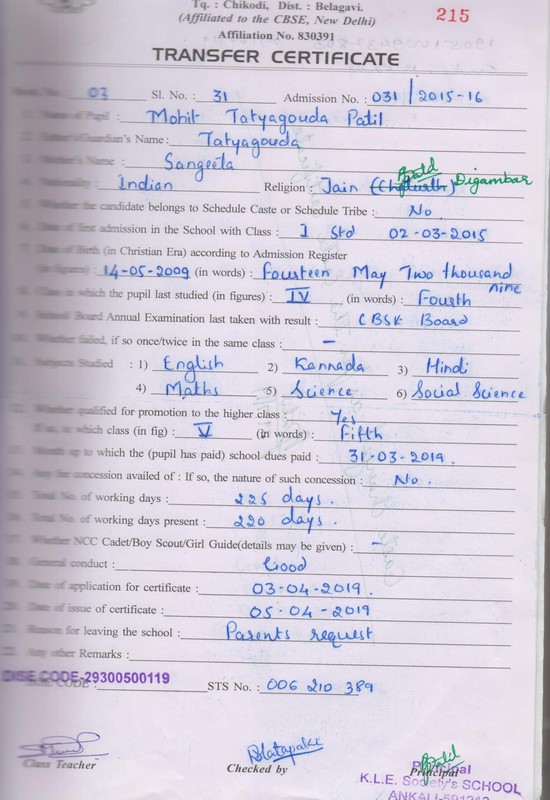 Tq. : Chikodi, Dist. : Belagavi.
(Affiliated to the CBSE, New Delhi)
215
Affiliation No. 830391
TRANSFER CERTIFICATE
03 Sl. No. : 31 Admission No. : 031 / 2015-16
of Pupil : Mohit Tatyagouda Patil
Name : Tatyagouda
Name : Sangeeta
Indian Religion : Jain Digambar
the candidate belongs to Schedule Caste or Schedule Tribe : No
Date of first admission in the School with Class : I Std 02-03-2015
Date of Birth (in Christian Era) according to Admission Register
: 14-05-2009 (in words) : Fourteen May Two thousand nine
Class in which the pupil last studied (in figures) : IV (in words) : Fourth
School Board Annual Examination last taken with result : CBSE Board
Whether failed, if so once/twice in the same class : –
Subjects Studied : 1) English 2) Kannada 3) Hindi
4) Maths 5) Science 6) Social Science
Whether qualified for promotion to the higher class : Yes
If so, to which class (in fig) : V (in words) : Fifth
Month up to which the (pupil has paid) school dues paid : 31-03-2019.
Any fee concession availed of : If so, the nature of such concession : No.
Total No. of working days : 225 days.
Total No. of working days present : 220 days.
Whether NCC Cadet/Boy Scout/Girl Guide(details may be given) : –
General conduct : Good
Date of application for certificate : 03-04-2019.
Date of issue of certificate : 05-04-2019
Reason for leaving the school : Parents request
Any other Remarks :
DISE CODE-29300500119
CODE : STS No. : 006 210 389
Class Teacher
Checked by
Principal
K.L.E. Society's SCHOOL